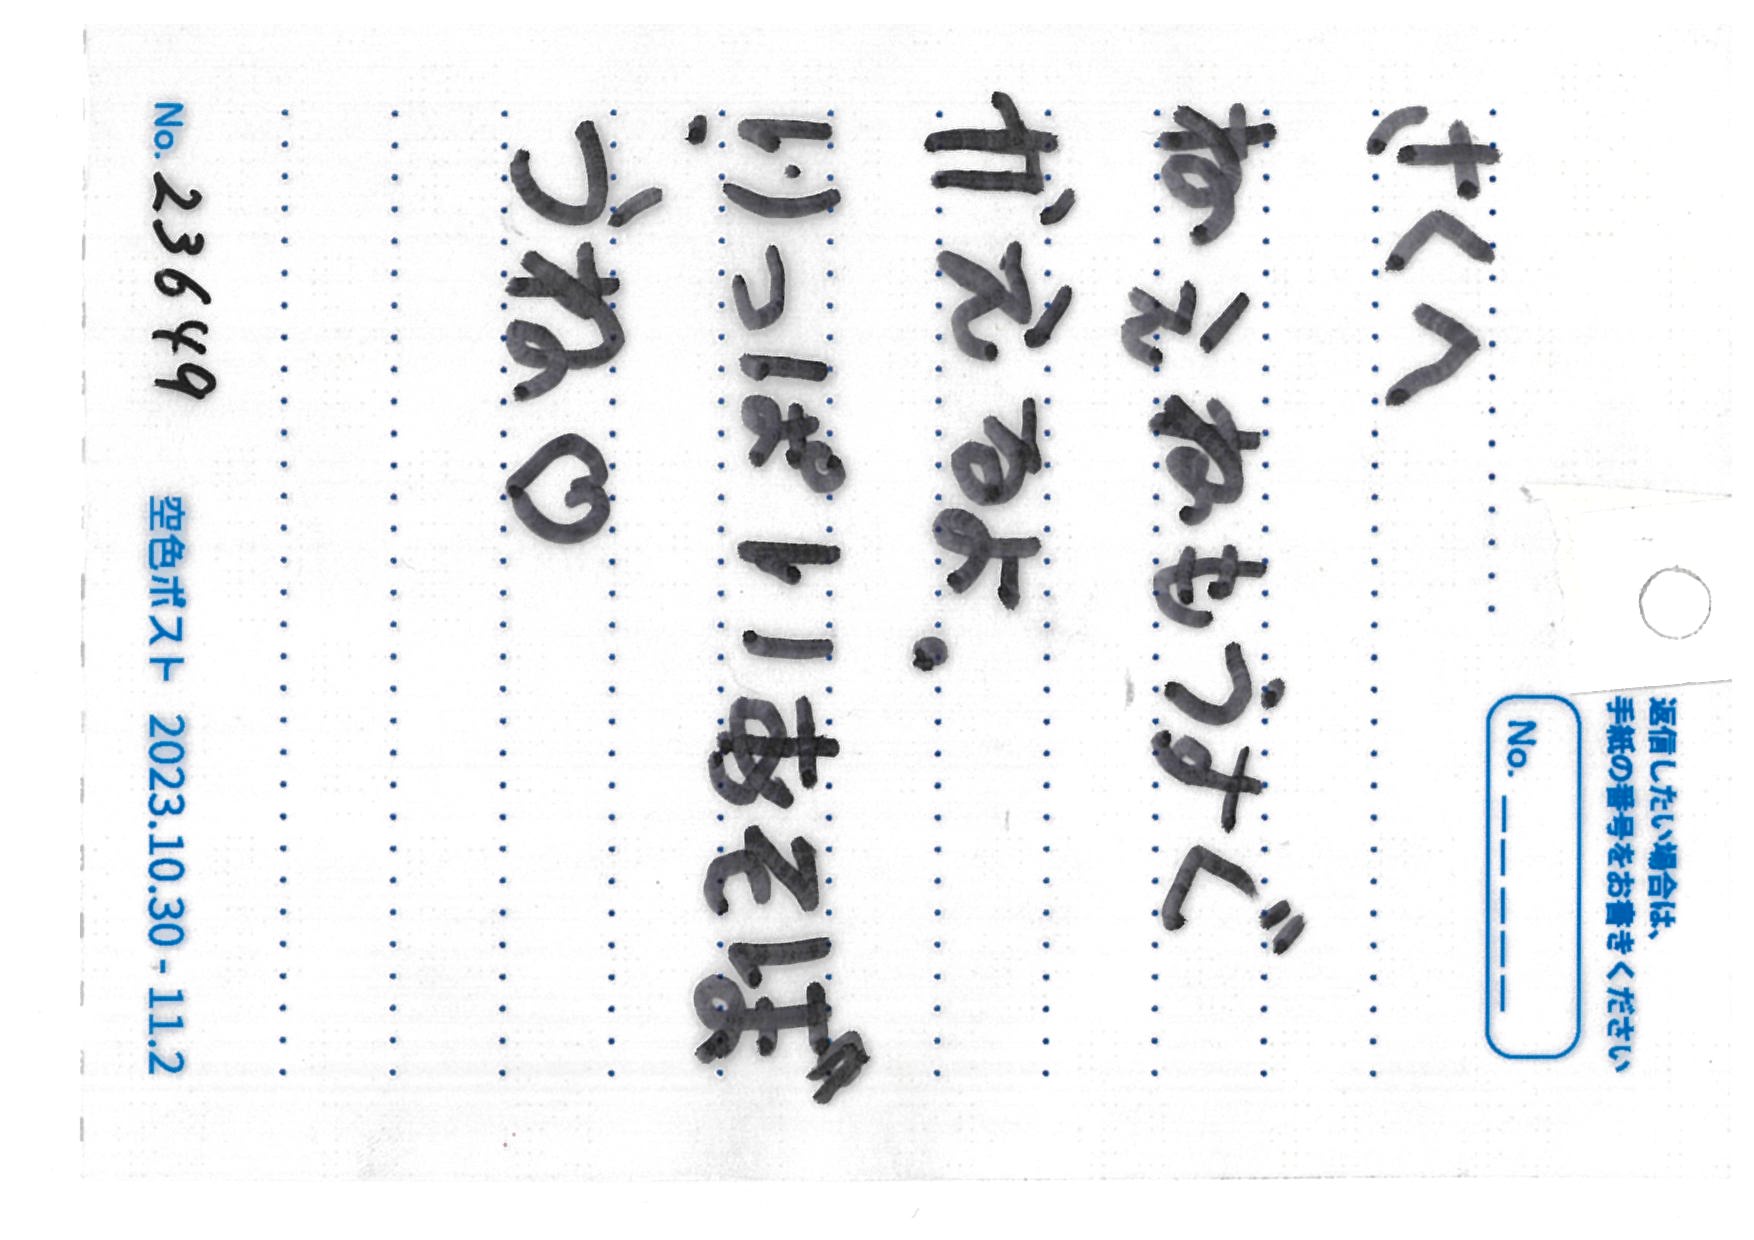 返信したい場合は、
手紙の番号をお書きください
No. _ _ _ _ _
さくへ
ねえねもうすぐ
かえるよ.
いっぱいあそぼ
うね♡
No. 23649 空色ポスト 2023.10.30 - 11.2